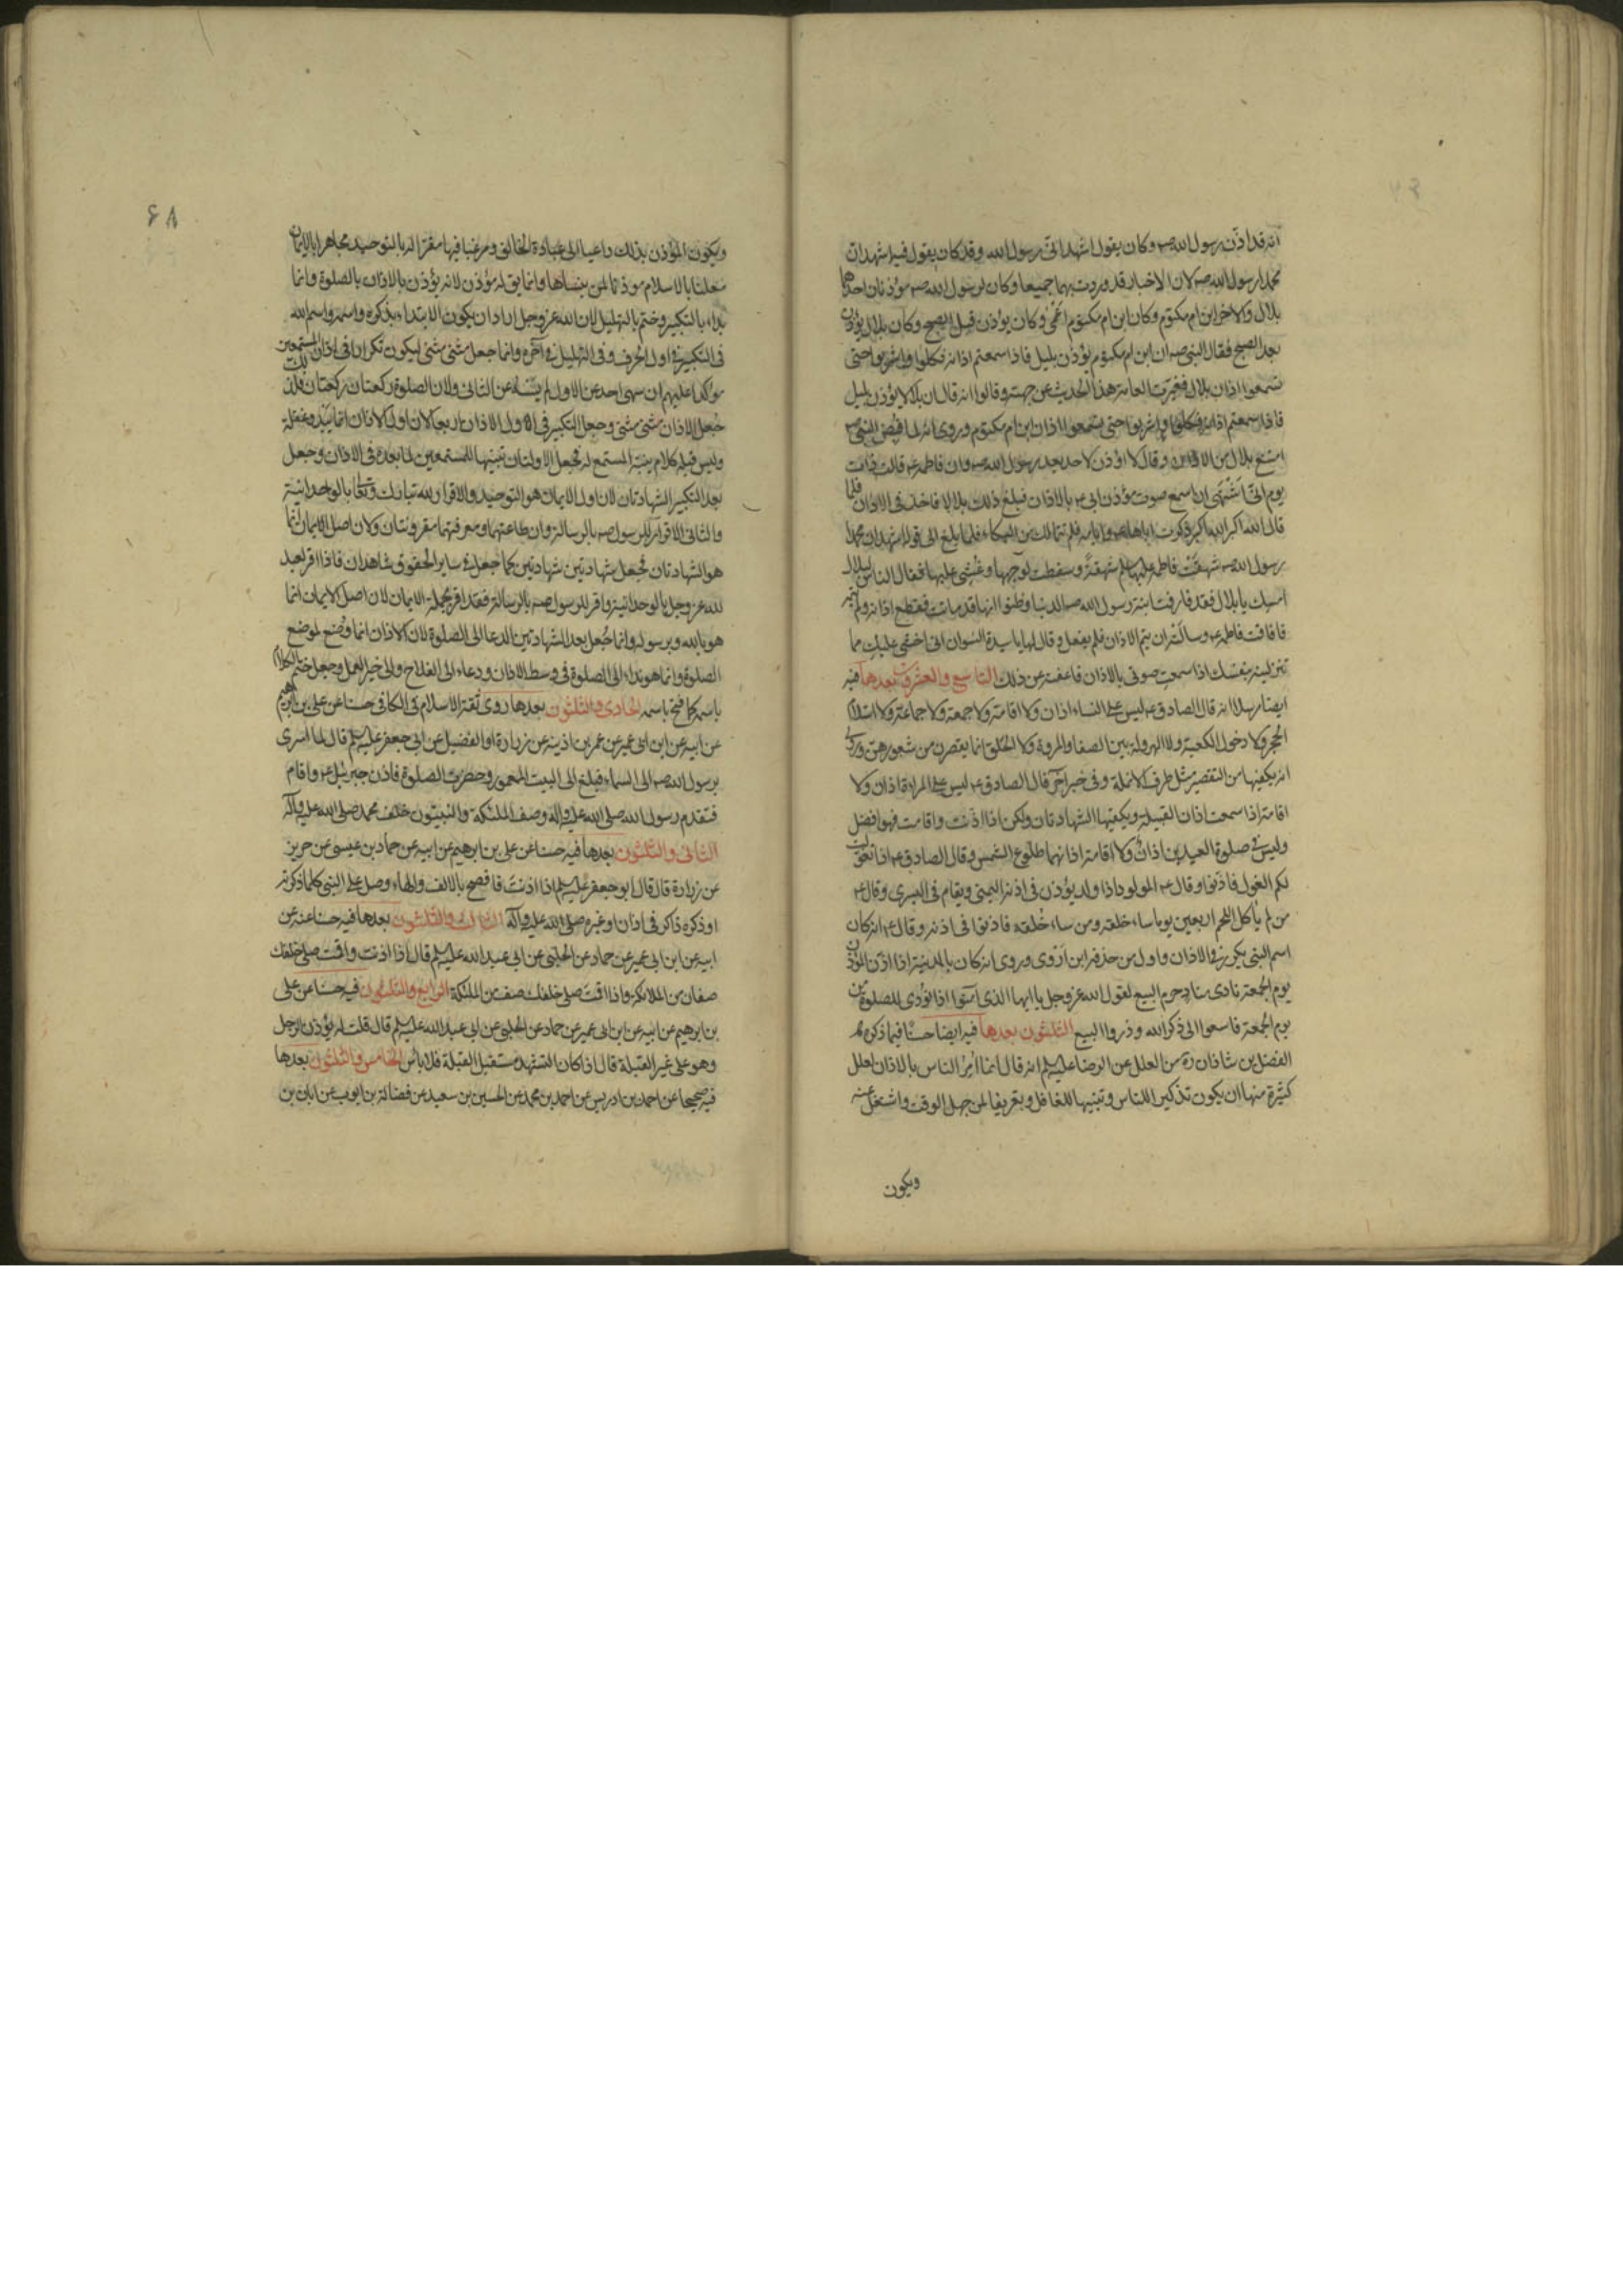 انه قد اذّن رسول الله صه وكان يقول اشهد انّى رسول الله وقد كان يقول فيه اشهد ان
محمدا رسول الله صه لان الاخبار قد وردت بهما جميعا وكان لرسول الله صه مؤذنان احدهما
بلال والاخر ابن ام مكتوم وكان ابن ام مكتوم اعمى وكان يؤذن قبل الصبح وكان بلال يؤذن
بعد الصبح فقال النبى صه ان ابن ام مكتوم يؤذن بليل فاذا سمعتم اذانه فكلوا واشربوا حتى
تسمعوا اذان بلال فغيرت العامة هذا الحديث عن جهته وقالوا انه قال ان بلالا يؤذن بليل
فاذا سمعتم اذانه فكلوا واشربوا حتى تسمعوا اذان ابن ام مكتوم وروى انه لما قبض النبى صه
امتنع بلال من الاذان وقال لا اؤذن لاحد بعد رسول الله صه وان فاطمه ع قالت ذات
يوم انى اشتهى ان اسمع صوت مؤذن ابى ع بالاذان فبلغ ذلك بلالا فاخذ فى الاذان فلما
قال الله اكبر الله اكبر ذكرت اباها ع وايامه فلم تتمالك من البكاء فلما بلغ الى قوله اشهد ان محمدا
رسول الله صه شهقت فاطمه عليها سلم شهقة وسقطت لوجهها وغشى عليها فقال الناس لبلال
امسك يا بلال فقد فارقت ابنة رسول الله صه الدنيا وظنوا انها قد ماتت فقطع اذانه ولم يتمه
فافاقت فاطمه ع وسالته ان يتم الاذان فلم يفعل وقال لها يا سيدة النسوان انى اخشى عليك مما
تنزلينه بنفسك اذا سمعت صوتى بالاذان فاعفته عن ذلك التاسع والعشرون بعدها فيه
ايضا مرسلا انه قال الصادق ع ليس على النساء اذان ولا اقامة ولا جمعة ولا جماعة ولا استلام
الحجر ولا دخول الكعبة ولا الهرولة بين الصفا والمروة ولا الحلق انما يقصرن من شعورهن وروى
انه يكفيها من التقصير مثل طرف الانملة وفى خبر اخر قال الصادق ع ليس على المراة اذان ولا
اقامة اذا سمعت اذان القبيلة ويكفيها الشهادتان ولكن اذا اذنت واقامت فهو افضل
وليس فى صلوة العيدين اذان ولا اقامة اذانهما طلوع الشمس وقال الصادق ع اذا تغولت
لكم الغول فاذنوا وقال ع المولود اذا ولد يؤذن فى اذنه اليمنى ويقام فى اليسرى وقال ع
من لم يأكل اللحم اربعين يوما ساء خلقه ومن ساء خلقه فاذنوا فى اذنه وقال ع انه كان
اسم النبى يكرر فى الاذان واول من حذفه ابن اروى وروى انه كان بالمدينة اذا اذن المؤذن
يوم الجمعة نادى مناد حرم البيع لقول الله عز وجل يا ايها الذى آمنوا اذا نودى للصلوة من
يوم الجمعة فاسعوا الى ذكر الله وذروا البيع الثلثون بعدها فيه ايضا حسنا فيما ذكره
الفضل بن شاذان ره من العلل عن الرضا عليه سلم انه قال انما امر الناس بالاذان لعلل
كثيرة منها ان يكون تذكيرا للناس وتنبيها للغافل وتعريفا لمن جهل الوقت واشتغل عنه
ويكون
۶۸
ويكون المؤذن بذلك داعيا الى عبادة الخالق ومرغبا فيها مقرا له بالتوحيد مجاهرا بالايمان
معلنا بالاسلام موذنا لمن ينساها وانما يق له مؤذن لانه يؤذن بالاذان بالصلوة وانما
بداء بالتكبير وختم بالتهليل لان الله عز وجل اراد ان يكون الابتداء بذكره واسمه واسم الله
فى التكبير فى اول الحرف وفى التهليل فى آخره وانما جعل مثنى مثنى ليكون تكرارا فى اذان المستمعين
مؤكدا عليهم ان سهى احد عن الاول لم يسه عن الثانى ولان الصلوة ركعتان ركعتان فلذلك
جعل الاذان مثنى مثنى وجعل التكبير فى اول الاذان اربعا لان اول الاذان انما يبدو غفلة
وليس قبله كلام ينبه المستمع له فجعل الاولتان تنبيها للمستمعين لما بعده فى الاذان وجعل
بعد التكبير الشهادتان لان اول الايمان هو التوحيد والاقرار لله تبارك وتعالى بالوحدانية
والثانى الاقرار للرسول صه بالرسالة وان طاعتهما ومعرفتهما مقرونتان ولان اصل الايمان انما
هو الشهادتان فجعل شهادتين شهادتين كما جعل فى ساير الحقوق شاهدان فاذا اقر العبد
لله عز وجل بالوحدانية واقر للرسول صه بالرسالة فقد اقر بجملة الايمان لان اصل الايمان انما
هو بالله وبرسوله وانما جعل بعد الشهادتين الدعا الى الصلوة لان الاذان انما وضع لموضع
الصلوة وانما هو نداء الى الصلوة فى وسط الاذان ودعاء الى الفلاح والى خير العمل وجعل ختم الكلام
باسمه كما فتح باسمه الحادى والثلثون بعدها روى ثقة الاسلام فى الكافى حسنا عن على بن ابرهيم
عن ابيه عن ابن ابى عمير عن عمر بن اذينه عن زرارة او الفضيل عن ابى جعفر عليه سلم قال لما اسرى
برسول الله صه الى السماء فبلغ الى البيت المعمور وحضرت الصلوة فاذن جبرئيل ع واقام
فتقدم رسول الله صلى الله عليه وآله وصف الملئكة والنبيون خلف محمد صلى الله عليه وآله
الثانى والثلثون بعدها فيه حسنا عن على بن ابرهيم عن ابيه عن حماد بن عيسى عن حريز
عن زرارة قال قال ابو جعفر عليه سلم اذا اذنت فافصح بالالف والهاء وصل على النبى كلما ذكرته
او ذكره ذاكر فى اذان او غيره صلى الله عليه وآله الثالث والثلثون بعدها فيه حسنا عنه عن
ابيه عن ابن ابى عمير عن حماد عن الحلبى عن ابى عبد الله عليه سلم قال اذا اذنت واقمت صلى خلفك
صفان من الملائكة واذا اقمت صلى خلفك صف من الملئكة الرابع والثلثون فيه حسنا عن على
بن ابرهيم عن ابيه عن ابن ابى عمير عن حماد عن الحلبى عن ابى عبد الله عليه سلم قال قلت له يؤذن الرجل
وهو على غير القبلة قال اذا كان التشهد مستقبل القبلة فلا باس الخامس والثلثون بعدها
فيه صحيحا عن احمد بن ادريس عن احمد بن محمد عن الحسين بن سعيد عن فضالة بن ايوب عن ابان بن